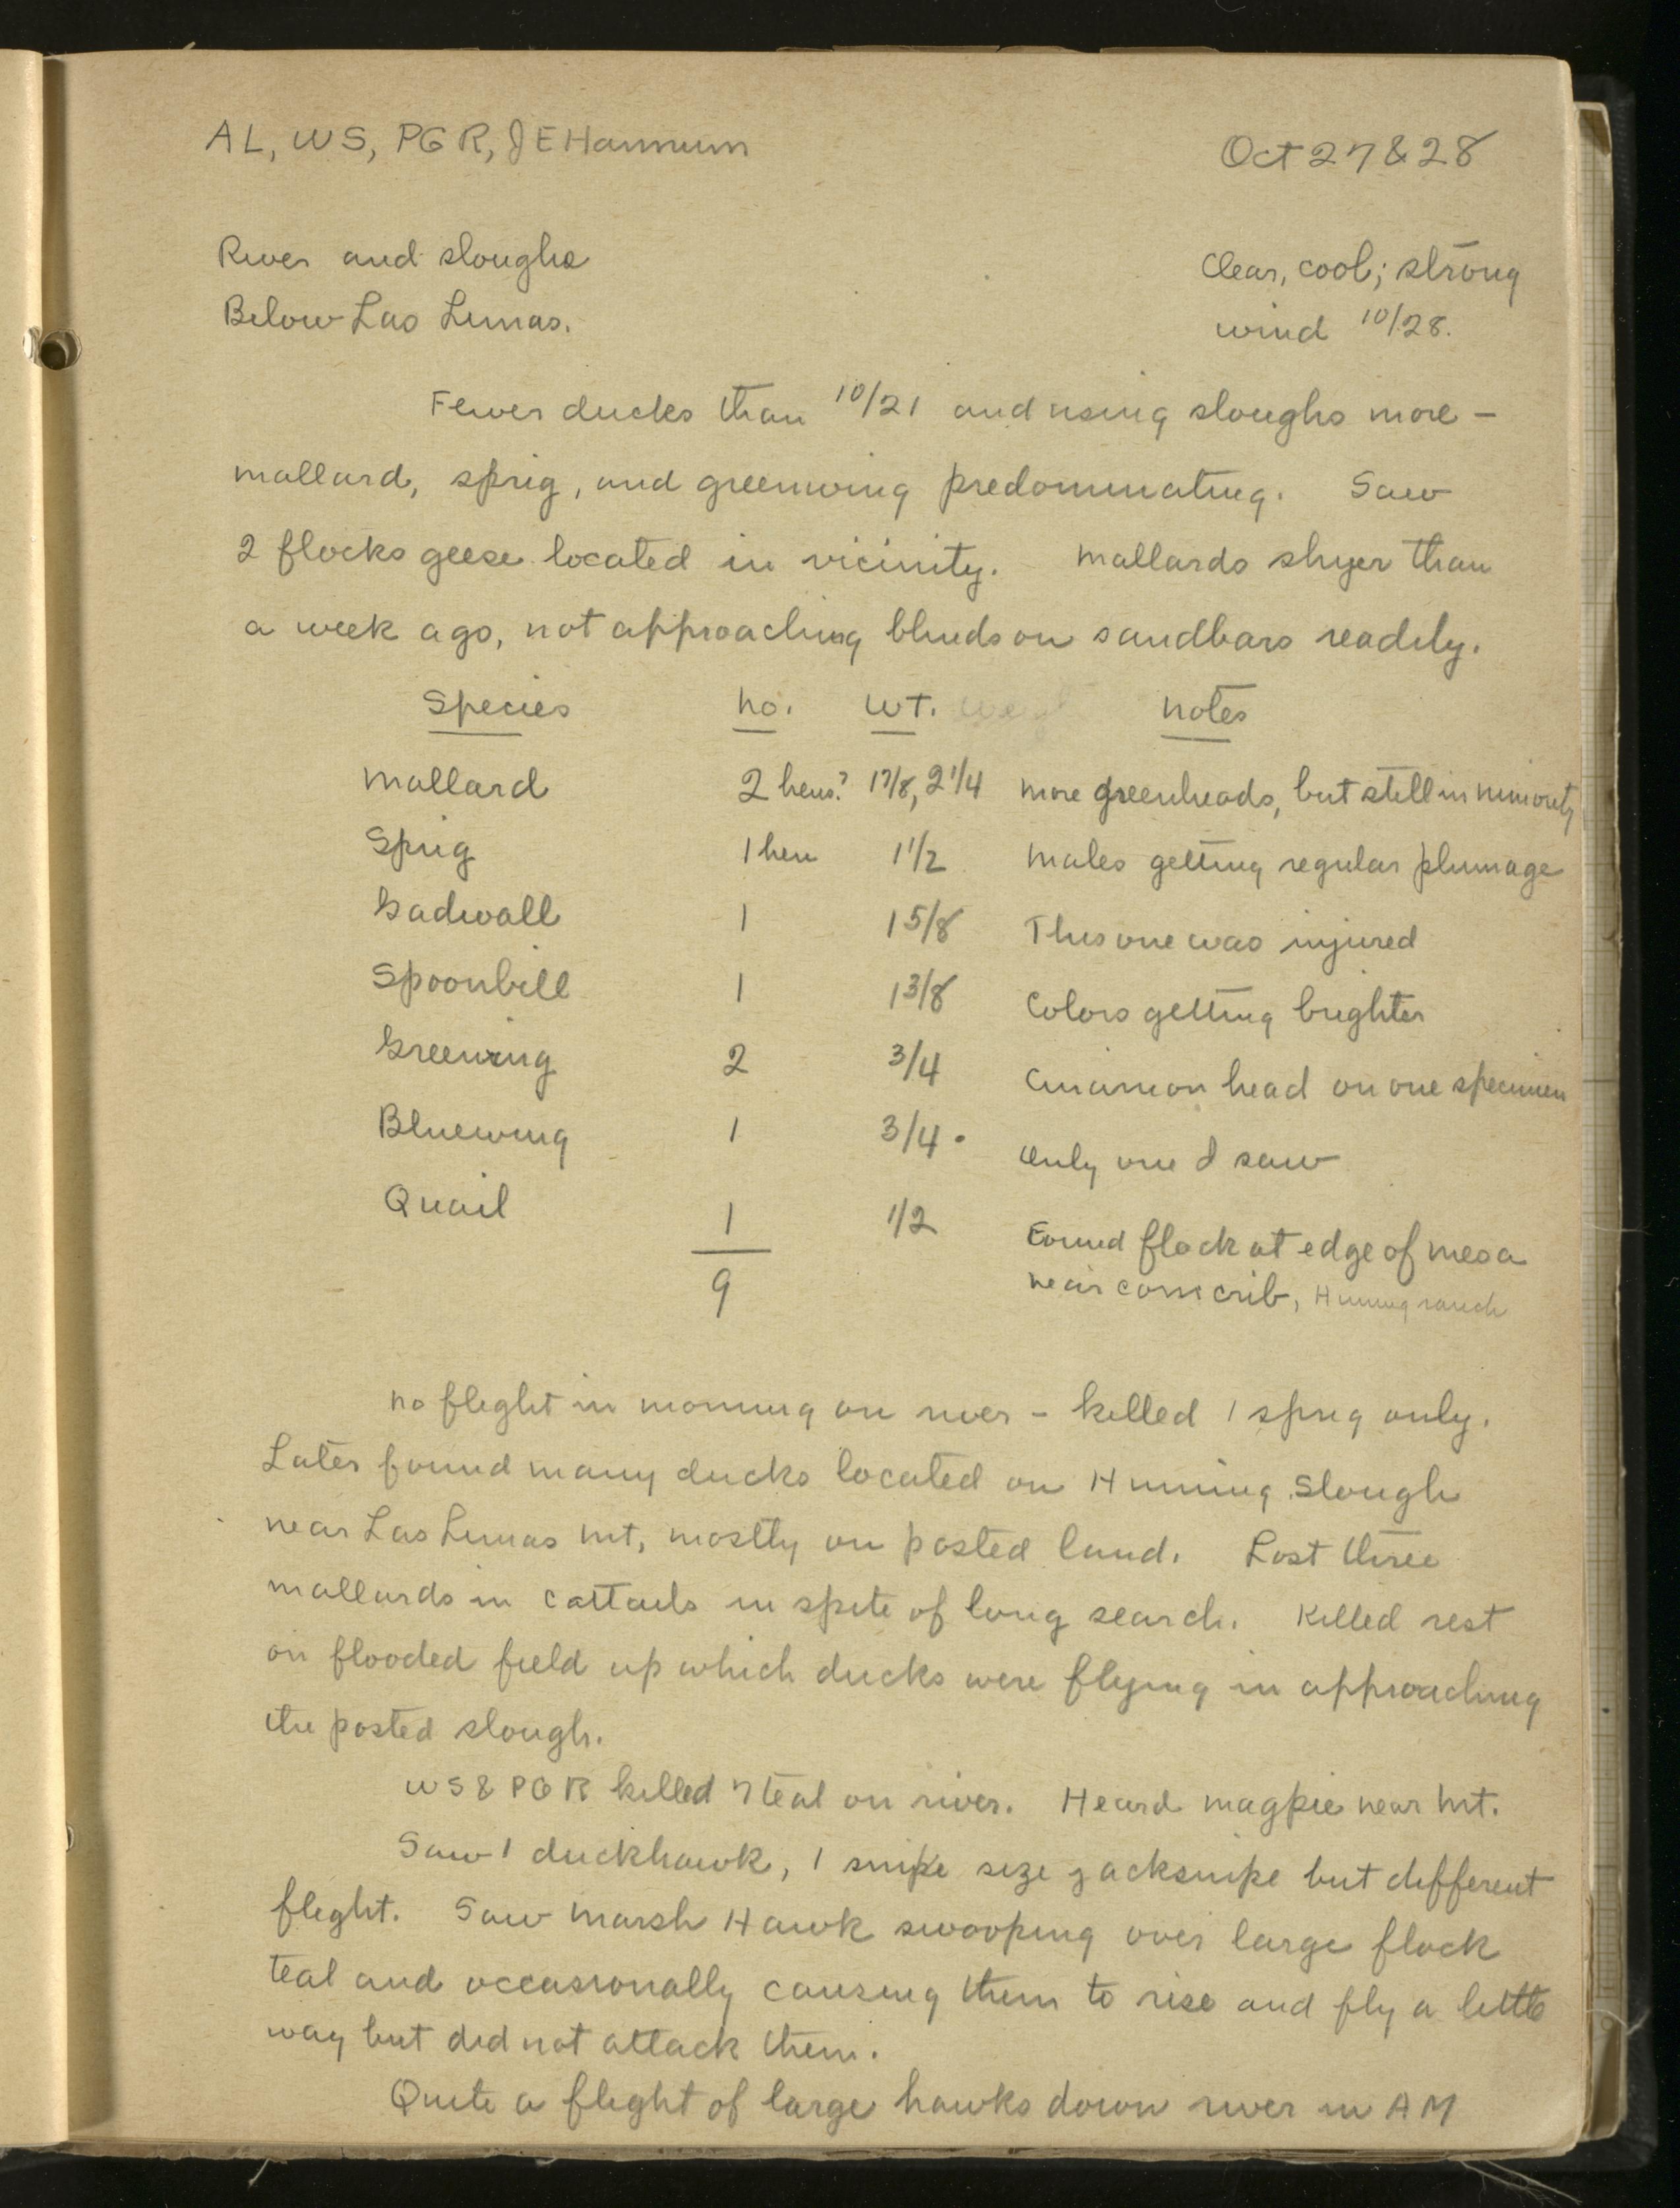 AL, WS, PGR, JEHannum Oct 27 & 28
River and sloughs Clear, cool; strong
Below Las Lunas. wind 10/28.
Fewer ducks than 10/21 and using sloughs more –
mallard, sprig, and greenwing predominating. Saw
2 flocks geese located in vicinity. Mallards shyer than
a week ago, not approaching blinds on sandbars readily.
Species No. Wt. Notes
Mallard 2 hens? 1 7/8, 2 1/4 More greenheads, but still in minority
Sprig 1 hen 1 1/2 Males getting regular plumage
Gadwall 1 1 5/8 This one was injured
Spoonbill 1 1 3/8 Colors getting brighter
Greenwing 2 3/4 Cinamon head on one specimen
Bluewing 1 3/4. Only one I saw
Quail 1 1/2 Found flock at edge of mesa
9 near corn crib, Huning ranch
No flight in morning on river – killed 1 sprig only.
Later found many ducks located on Huning Slough
near Las Lunas Mt, mostly on posted land. Lost three
mallards in cattails in spite of long search. Killed rest
on flooded field up which ducks were flying in approaching
the posted slough.
WS & PGR killed 7 teal on river. Heard magpie near Mt.
Saw 1 duckhawk, 1 snipe size jacksnipe but different
flight. Saw Marsh Hawk swooping over large flock
teal and occasionally causing them to rise and fly a little
way but did not attack them.
Quite a flight of large hawks down river in AM